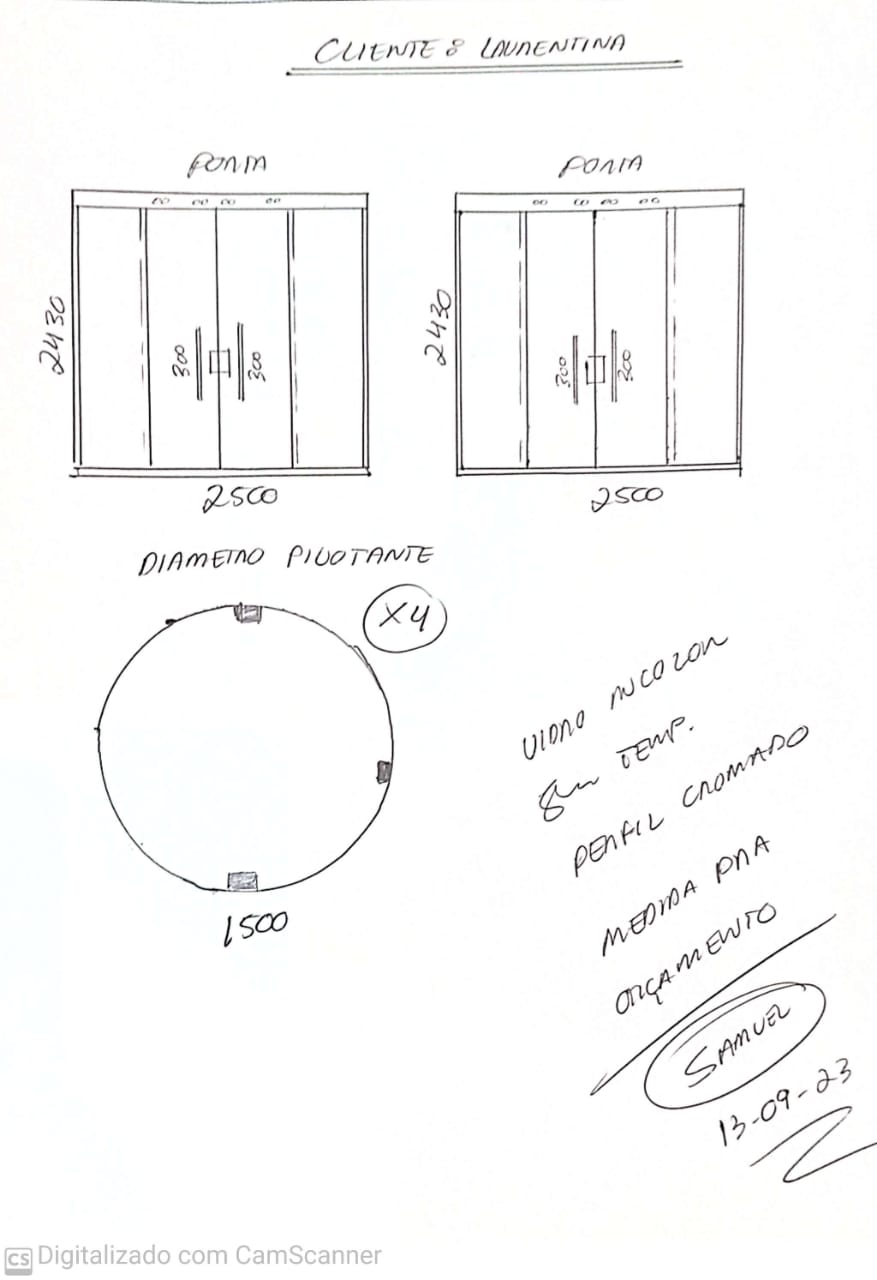 CLIENTE: LAURENTINA
PORTA PORTA
2430 300 300 2430 300 300
2500 2500
DIAMETRO PIVOTANTE
X4
1500
VIDRO INCOLOR
8m TEMP.
PERFIL CROMADO
MEDIDA PRA
ORÇAMENTO
SAMUEL
13-09-23
CS Digitalizado com CamScanner